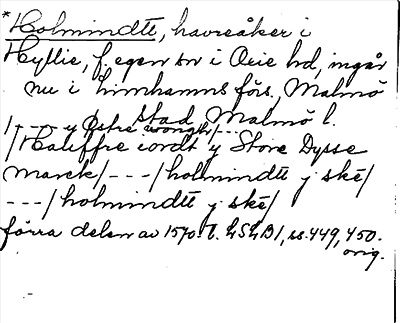 *Holmindtt, havreåker i
Hyllie, f. egen sn i Oxie hd, ingår
nu i Limhamns förs, Malmö
stad, Malmö l.
/--- y Østre wongh/---
/Haleffre iordt y Store Dysse
marck/---/holmindtt y ske/
---/holmindtt y ske/
förra delen av 1570-t. LSLB1, ss. 449, 450.
orig.